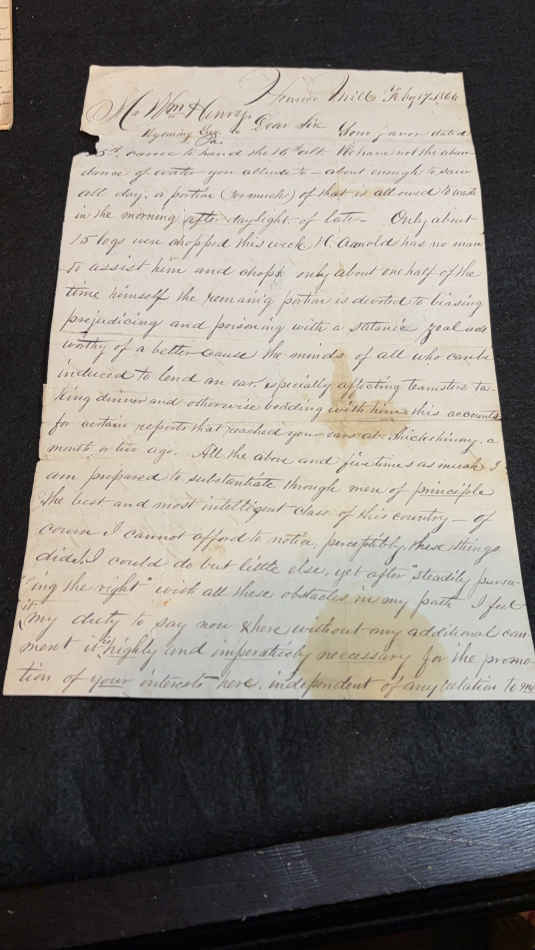 Mill Feby 17, 1866
Mr Wm Henry
Wyoming Pa. Dear Sir Your favor dated
5th, came to hand the 16th ult. We have not the abun
dance of water you allude to – about enough to saw
all day, a portion (too much) of that is allowed to waste
in the morning after daylight of late – Only about
15 logs were chopped this week H. Arnold has no man
to assist him and chops only about one half of the
time himself the remanig portion is devoted to biasing
prejudicing and poisoning with a satanic zeal
worthy of a better cause the minds of all who can be
induced to lend an ear especially affecting teamsters ta-
king dinner and otherwise boarding with him this accounts
for certain reports that reached your ears at Shickshinny, a
month or two ago. All the above and five times as much I
am prepared to substantiate through men of principle
the best and most intelligent class of this country – of
course I cannot afford to notice, perceptibly these things
did I could do but little else, yet after "steadily pursu-
"ing the right" with all these obstacles in my path I feel
it my duty to say now & here, without any additional com
ment it is highly and imperatively necessary for the promo-
tion of your interests here, independent of any relation to me